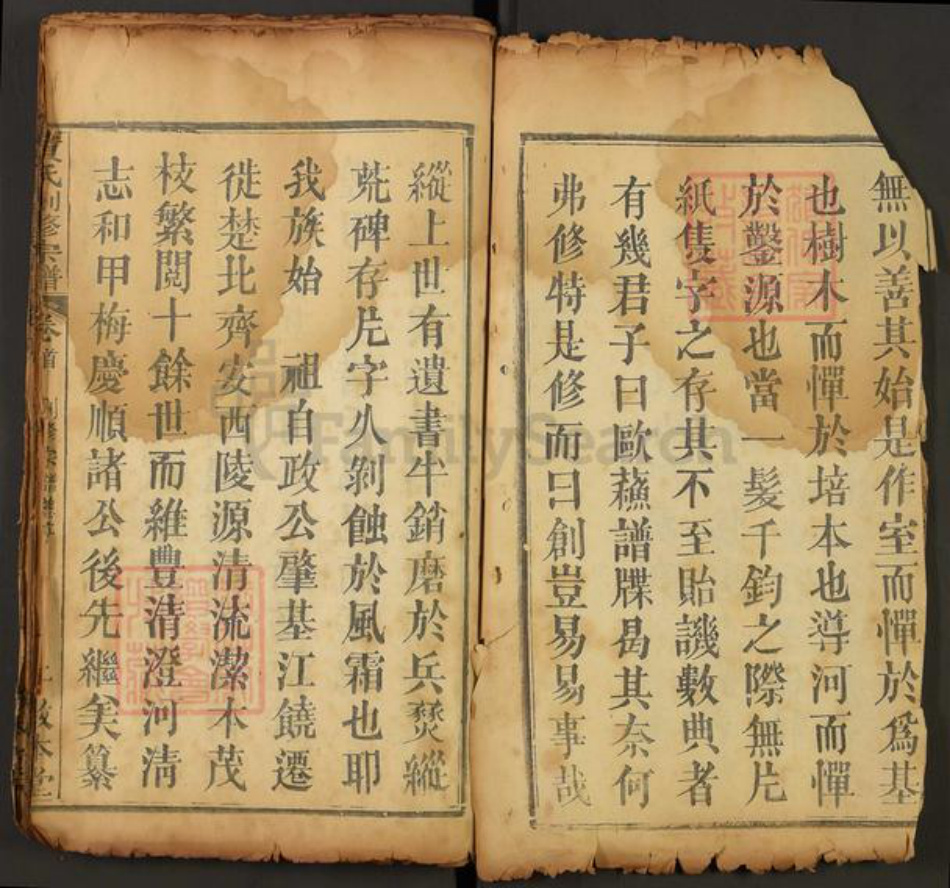 無以善其始是作室而憚於爲基
也樹木而憚於培本也導河而憚
於鑿源也當一髮千鈞之際無片
紙隻字之存其不至貽譏數典者
有幾君子曰歐蘇譜牒曷其奈何
弗修特是修而曰創豈易易事哉
縱上世有遺書半銷磨於兵燹縱
兟碑存片字久剝蝕於風霜也耶
我族始 祖自政公肇基江饒遷
徙楚北齊安西陵源清流潔本茂
枝繁閱十餘世而維豐清澄河清
志和甲梅慶順諸公後先繼矣纂
氏創修宗譜 卷首
FamilySearch